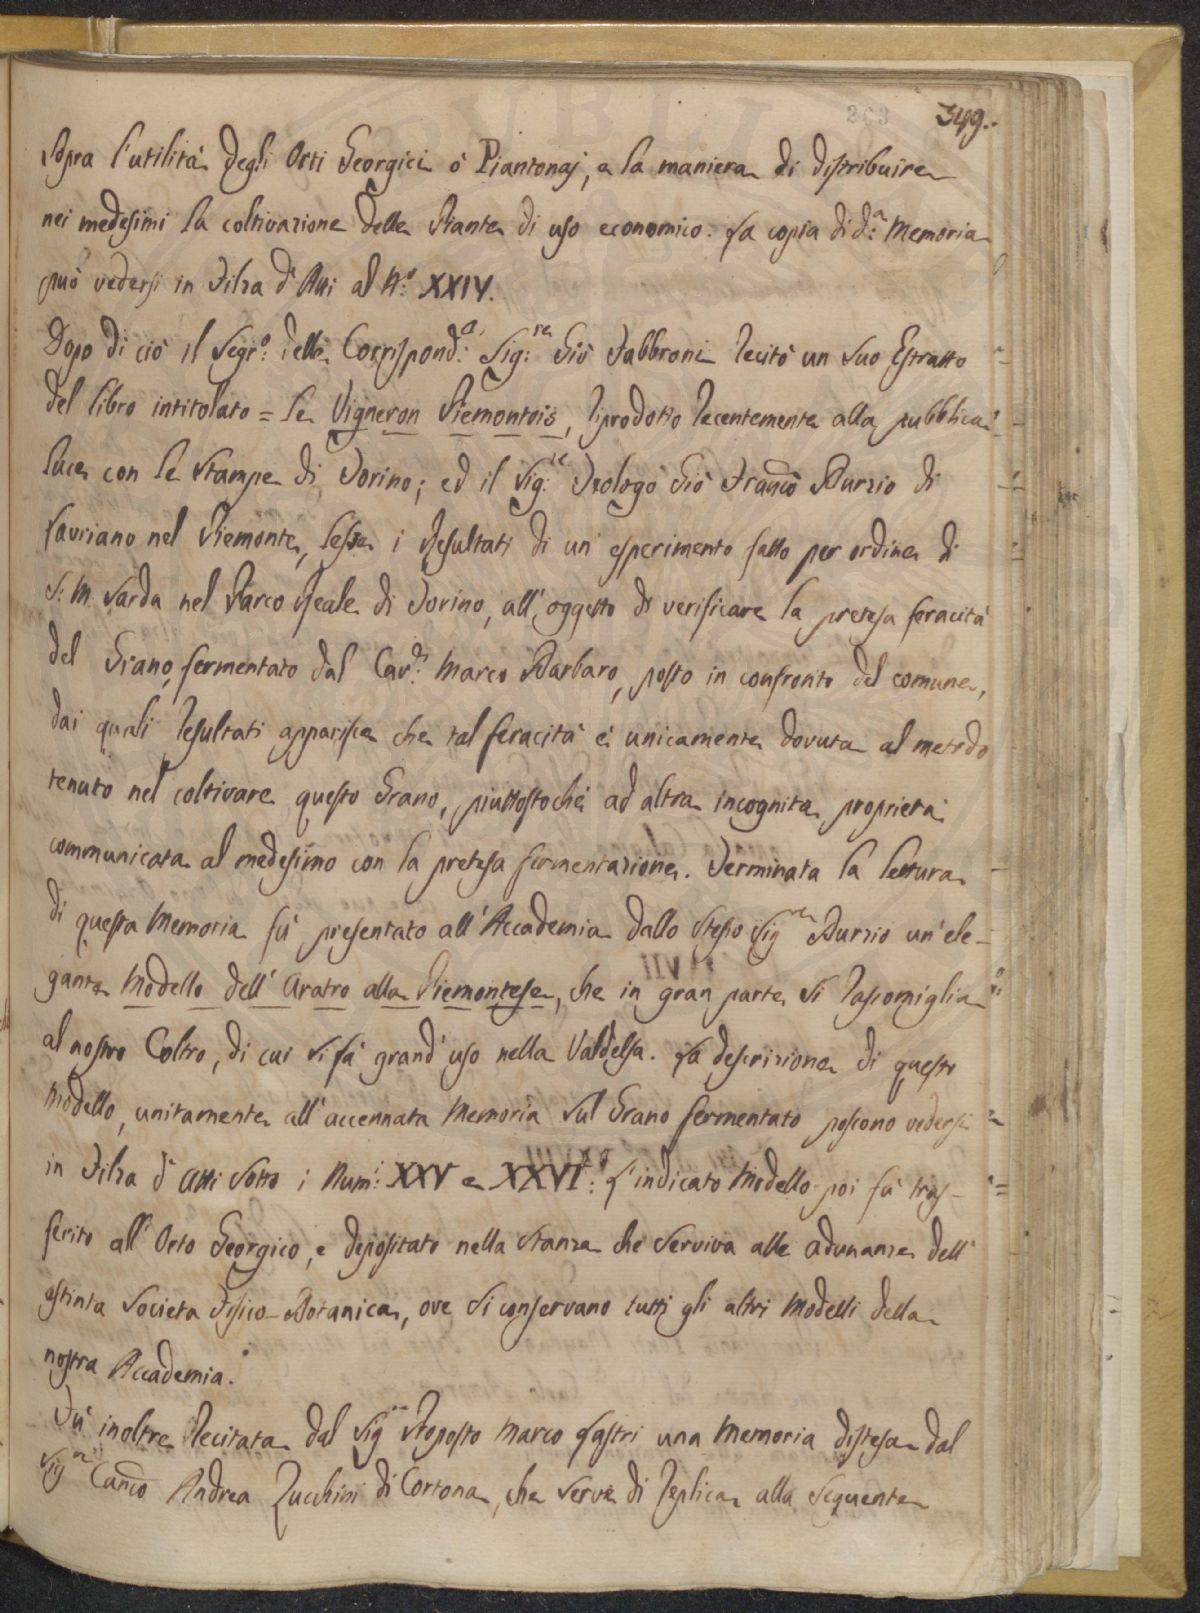 263 349.
sopra l'utilità degli Orti Georgici ò Piantonaj, e la maniera di distribuire
nei medesimi la coltivazione delle Piante di uso economico. La copia di d.ª Memoria
può vedersi in Filza d'Atti al N.º XXIV.
Dopo di ciò il Segr.º delle Corrispond.e Sig.re Gio Fabbroni recitò un suo Estratto
del libro intitolato = Le Vigneron Piemontois, riprodotto recentemente alla pubblica
luce con le stampe di Torino; ed il Sig.re Teologo Gio Franco Burzio di
Lauriano nel Piemonte, lesse i resultati di un esperimento fatto per ordine di
S: M. Sarda nel Parco Reale di Torino, all'oggetto di verificare la pretesa feracità
del Grano fermentato dal Cav.r Marco Barbaro, posto in confronto del comune,
dai quali resultati apparisce che tal feracità è unicamente dovuta al metodo
tenuto nel coltivare questo Grano, piuttostochè ad altra incognita proprietà
communicata al medesimo con la pretesa fermentazione. Terminata la lettura
di questa Memoria fù presentato all'Accademia dallo stesso Sig.re Burzio un'ele-
gante Modello dell'Aratro alla Piemontese, che in gran parte si rassomiglia
al nostro Coltro, di cui si fà grand'uso nella Valdelsa. La descrizione di questo
Modello, unitamente all'accennata Memoria sul Grano fermentato possono vedersi
in Filza d'Atti sotto i Num.i XXV e XXVI.º: L'indicato Modello poi fù tras-
ferito all'Orto Georgico, e depositato nella stanza che serviva alle adunanze dell'
estinta Società Fisico-Botanica, ove si conservano tutti gli altri Modelli della
nostra Accademia.
Fù inoltre recitata dal Sig.re Proposto Marco Lastri una Memoria distesa dal
Sig.re Canco Andrea Zucchini di Cortona, che serve di replica alla seguente